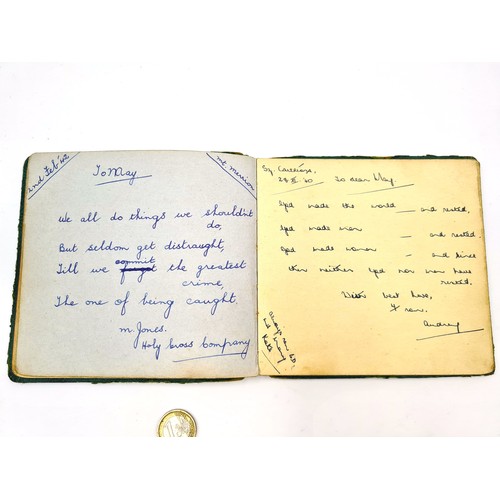 2nd Feb '42
Mt. Merrion
To May
We all do things we shouldn't
do,
But seldom get distraught,
Till we commit the greatest
crime,
The one of being caught.
M. Jones.
Holy Cross Company
To dear May.
God made the world — and rested,
God made man — and rested
God made woman — and since
then neither God nor man have
rested.
With best love,
from
Audrey